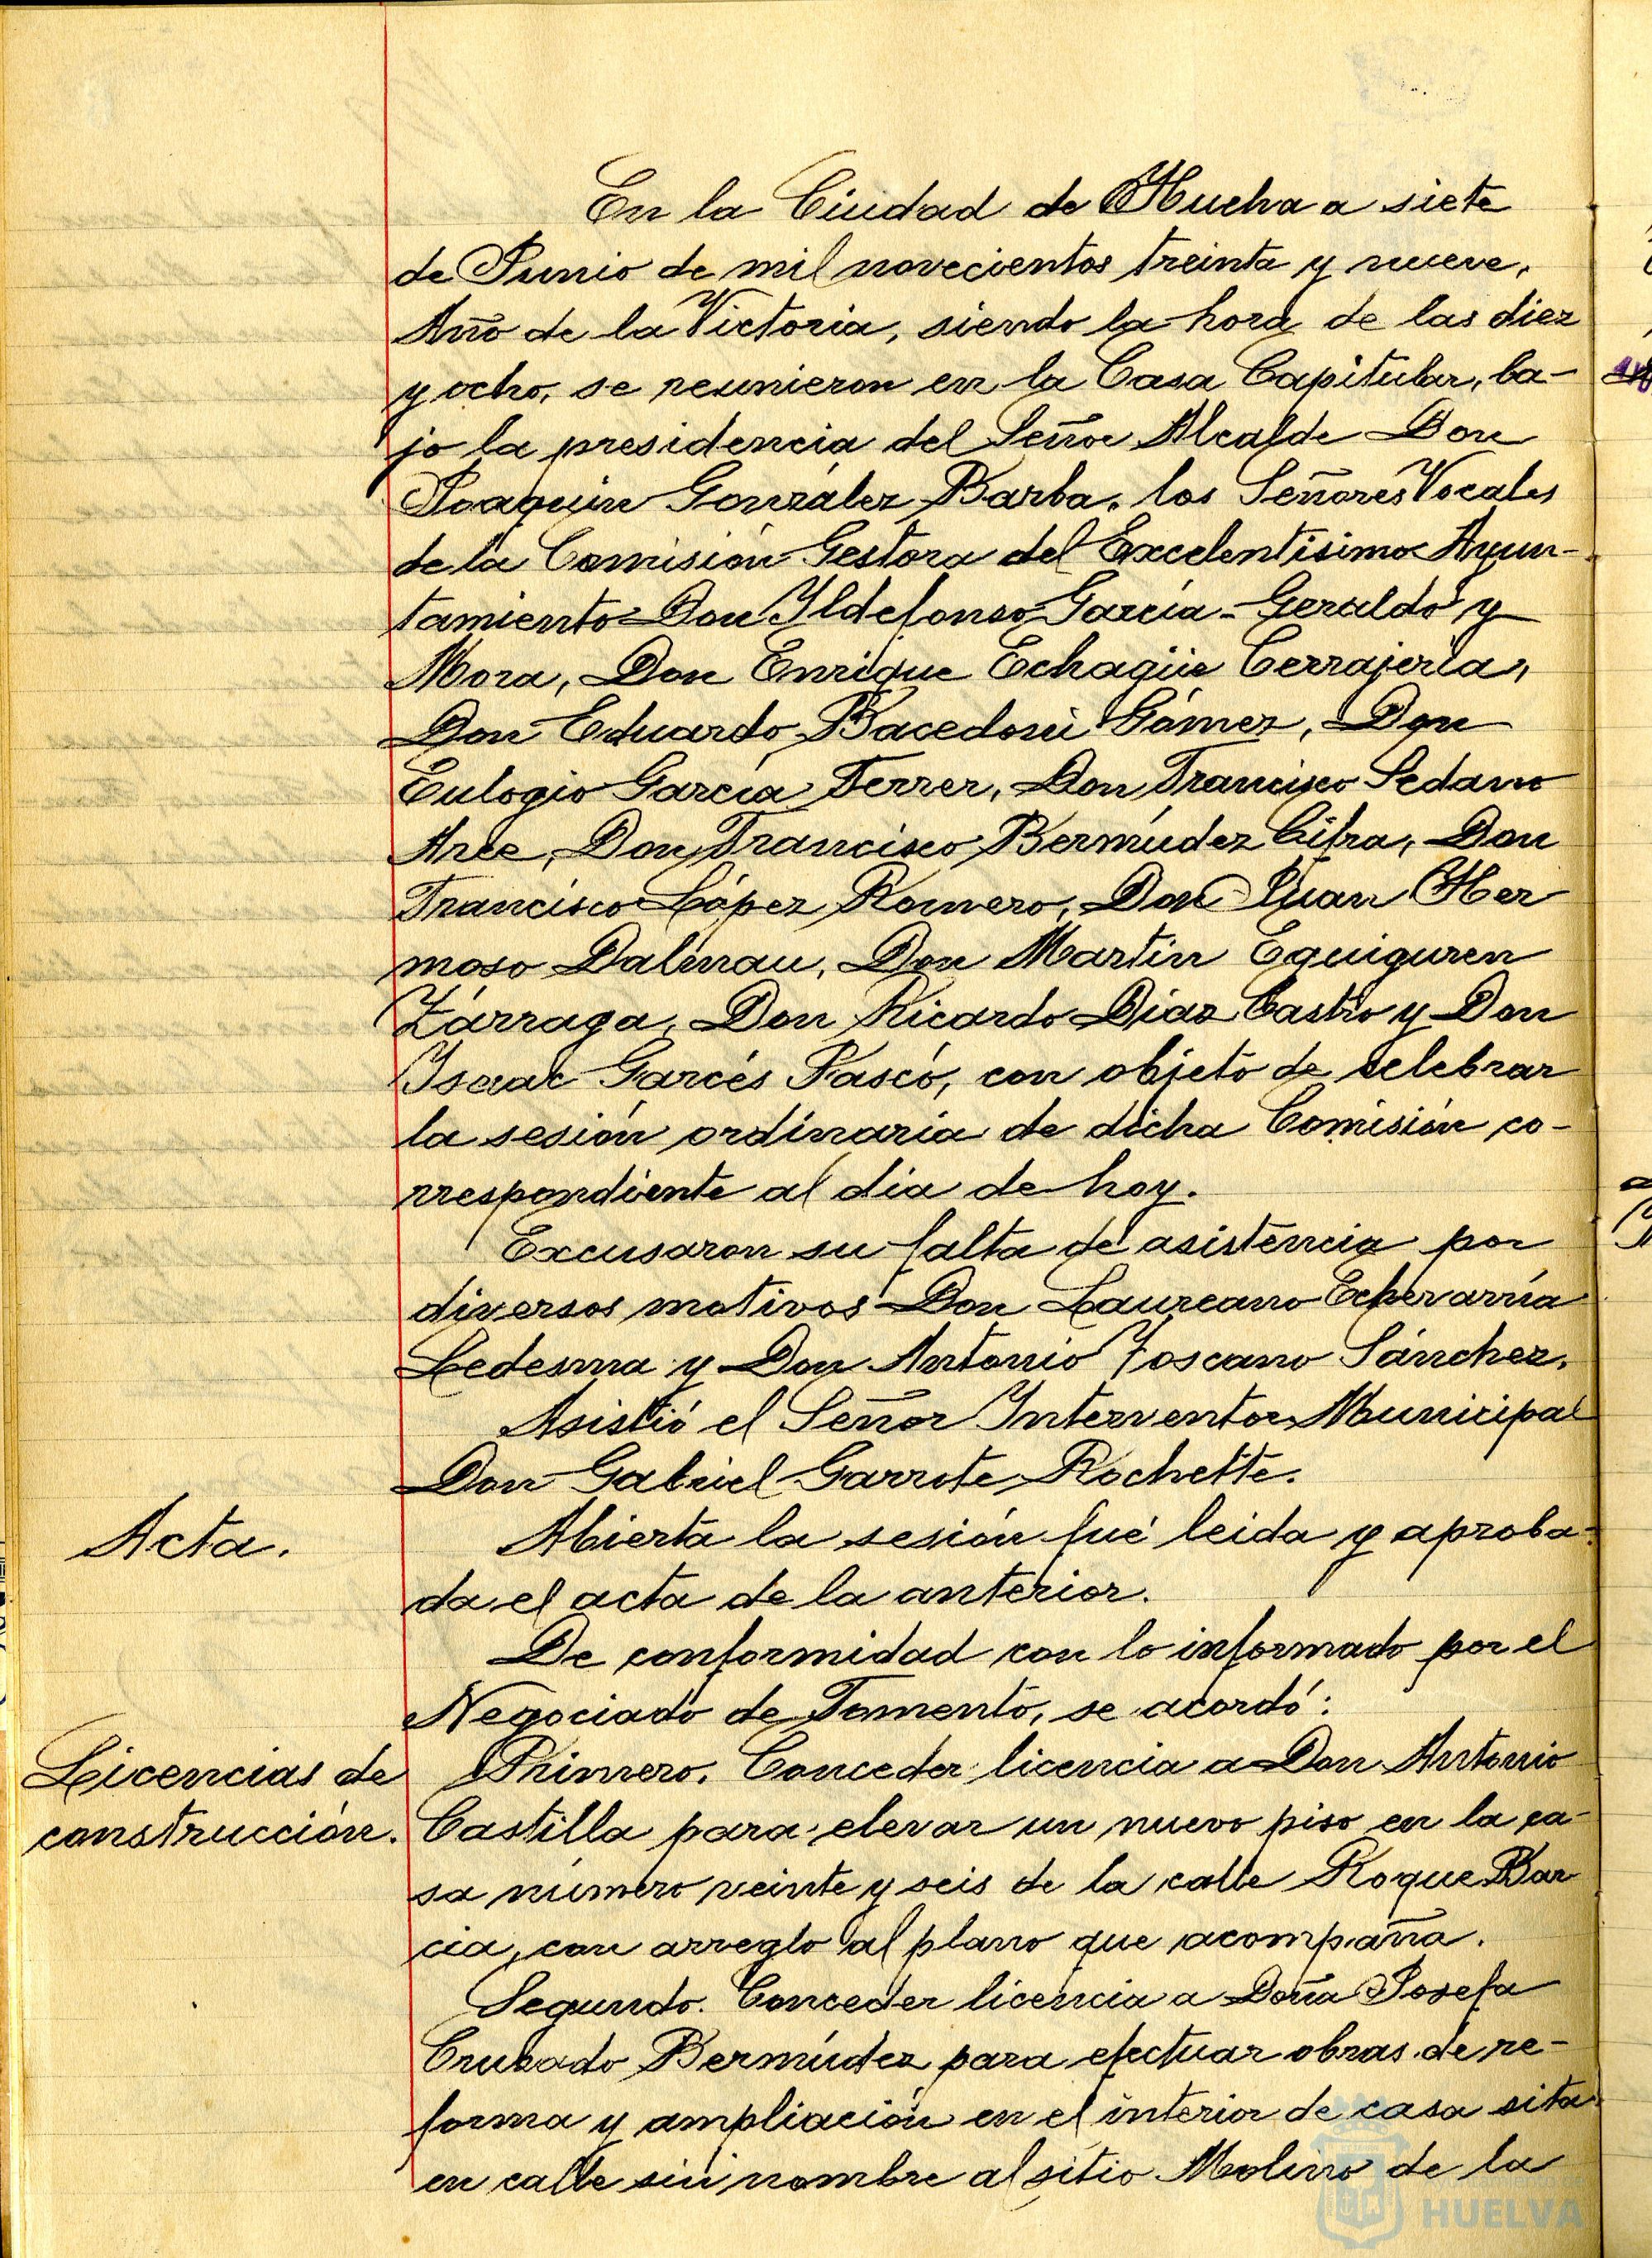 En la Ciudad de Huelva a siete
de Junio de mil novecientos treinta y nueve,
Año de la Victoria, siendo la hora de las diez
y ocho, se reunieron en la Casa Capitular, ba-
jo la presidencia del Señor Alcalde Don
Joaquin González Barba, los Señores Vocales
de la Comisión Gestora del Excelentísimo Ayun-
tamiento Don Yldefonso García-Geraldo y
Mora, Don Enrique Echagüe Cerrajería,
Don Eduardo Bacedoni Gómez, Don
Eulogio García Ferrer, Don Francisco Sedano
Arce, Don Francisco Bermúdez Cifra, Don
Francisco López Romero, Don Juan Her
moso Dalmau, Don Martín Eguiguren
Zárraga, Don Ricardo Díaz Castro y Don
Ysaac Garcés Pascó, con objeto de celebrar
la sesión ordinaria de dicha Comisión co-
rrespondiente al dia de hoy.
Excusaron su falta de asistencia por
diversos motivos Don Laureano Echevarría
Ledesma y Don Antonio Toscano Sánchez.
Asistió el Señor Ynterventor Municipal
Don Gabriel Garrote Rochette.
Acta.
Abierta la sesión fué leida y aproba-
da el acta de la anterior.
De conformidad con lo informado por el
Negociado de Fomento, se acordó:
Licencias de
construcción.
Primero. Conceder licencia a Don Antonio
Castilla para elevar un nuevo piso en la ca-
sa número veinte y seis de la calle Roque Bar
cia, con arreglo al plano que acompaña.
Segundo. Conceder licencia a Doña Josefa
Cruzado Bermúdez para efectuar obras de re-
forma y ampliación en el interior de casa sita
en calle sin nombre al sitio Molino de la
HUELVA